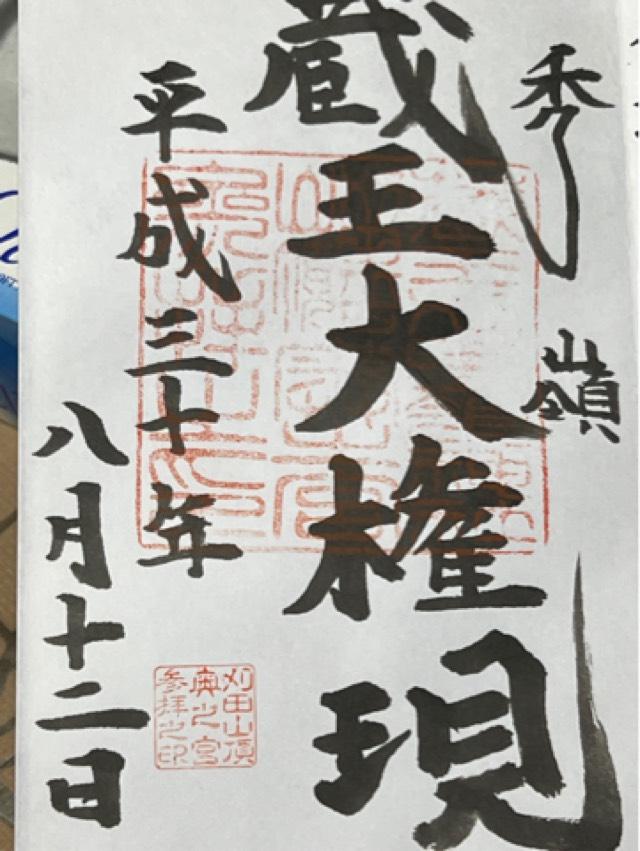 秀嶺
蔵王大権現
平成三十年
八月十二日
刈田山頂
奥之宮
参拝之印